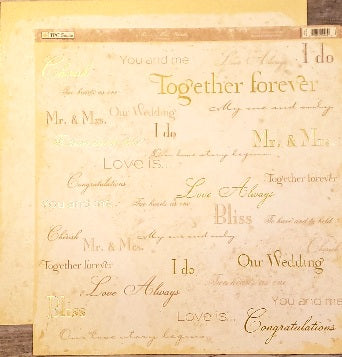 You and me
Love Always
I do
Cherish
Together forever
Two hearts as one
My one and only
Mr. & Mrs.
Our Wedding
I do
Mr. & Mrs.
Love is...
Our love story begins
Together forever
Congratulations
Love Always
You and me
Two hearts as one
Bliss
To have and to hold
Cherish
My one and only
Mr. & Mrs.
Cherish
Our Wedding
Together forever
I do
Two hearts as one
Love Always
You and me
Bliss
Love is...
Congratulations
Our love story begins